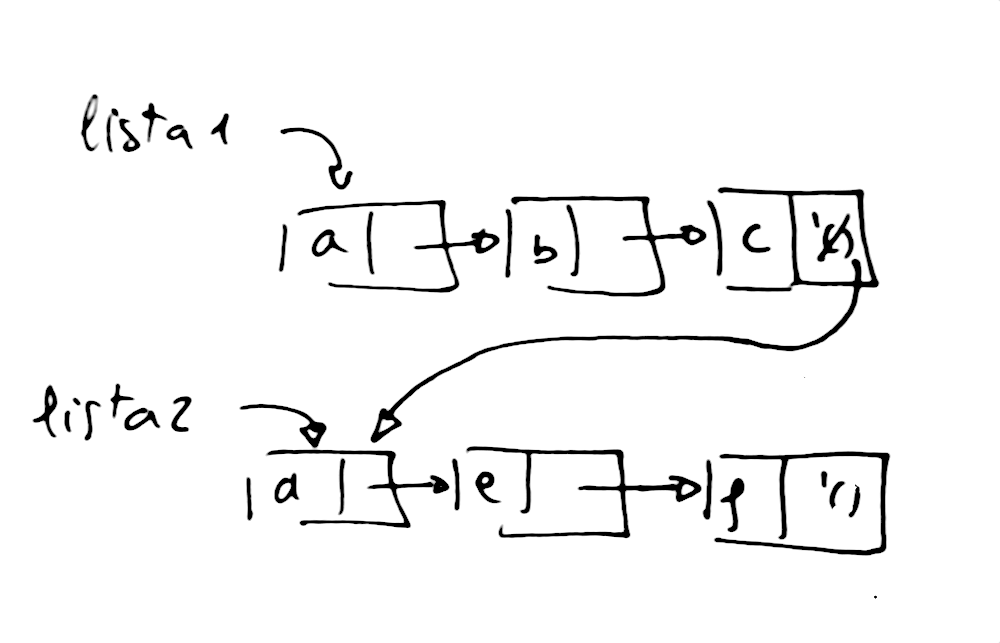 lista 1
a b c '()
lista 2
a e f '()